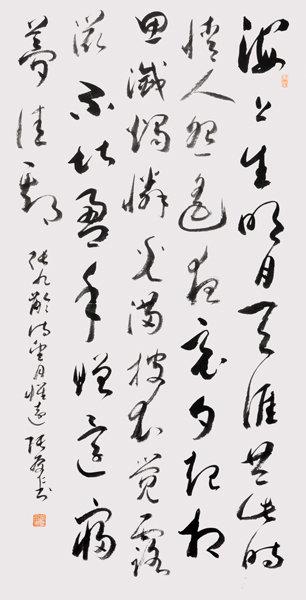 海上生明月天涯共此時
情人怨遙夜竟夕起相
思滅燭憐光滿披衣覺露
滋不堪盈手贈還寢
夢佳期
張九齡詩望月懷遠 張